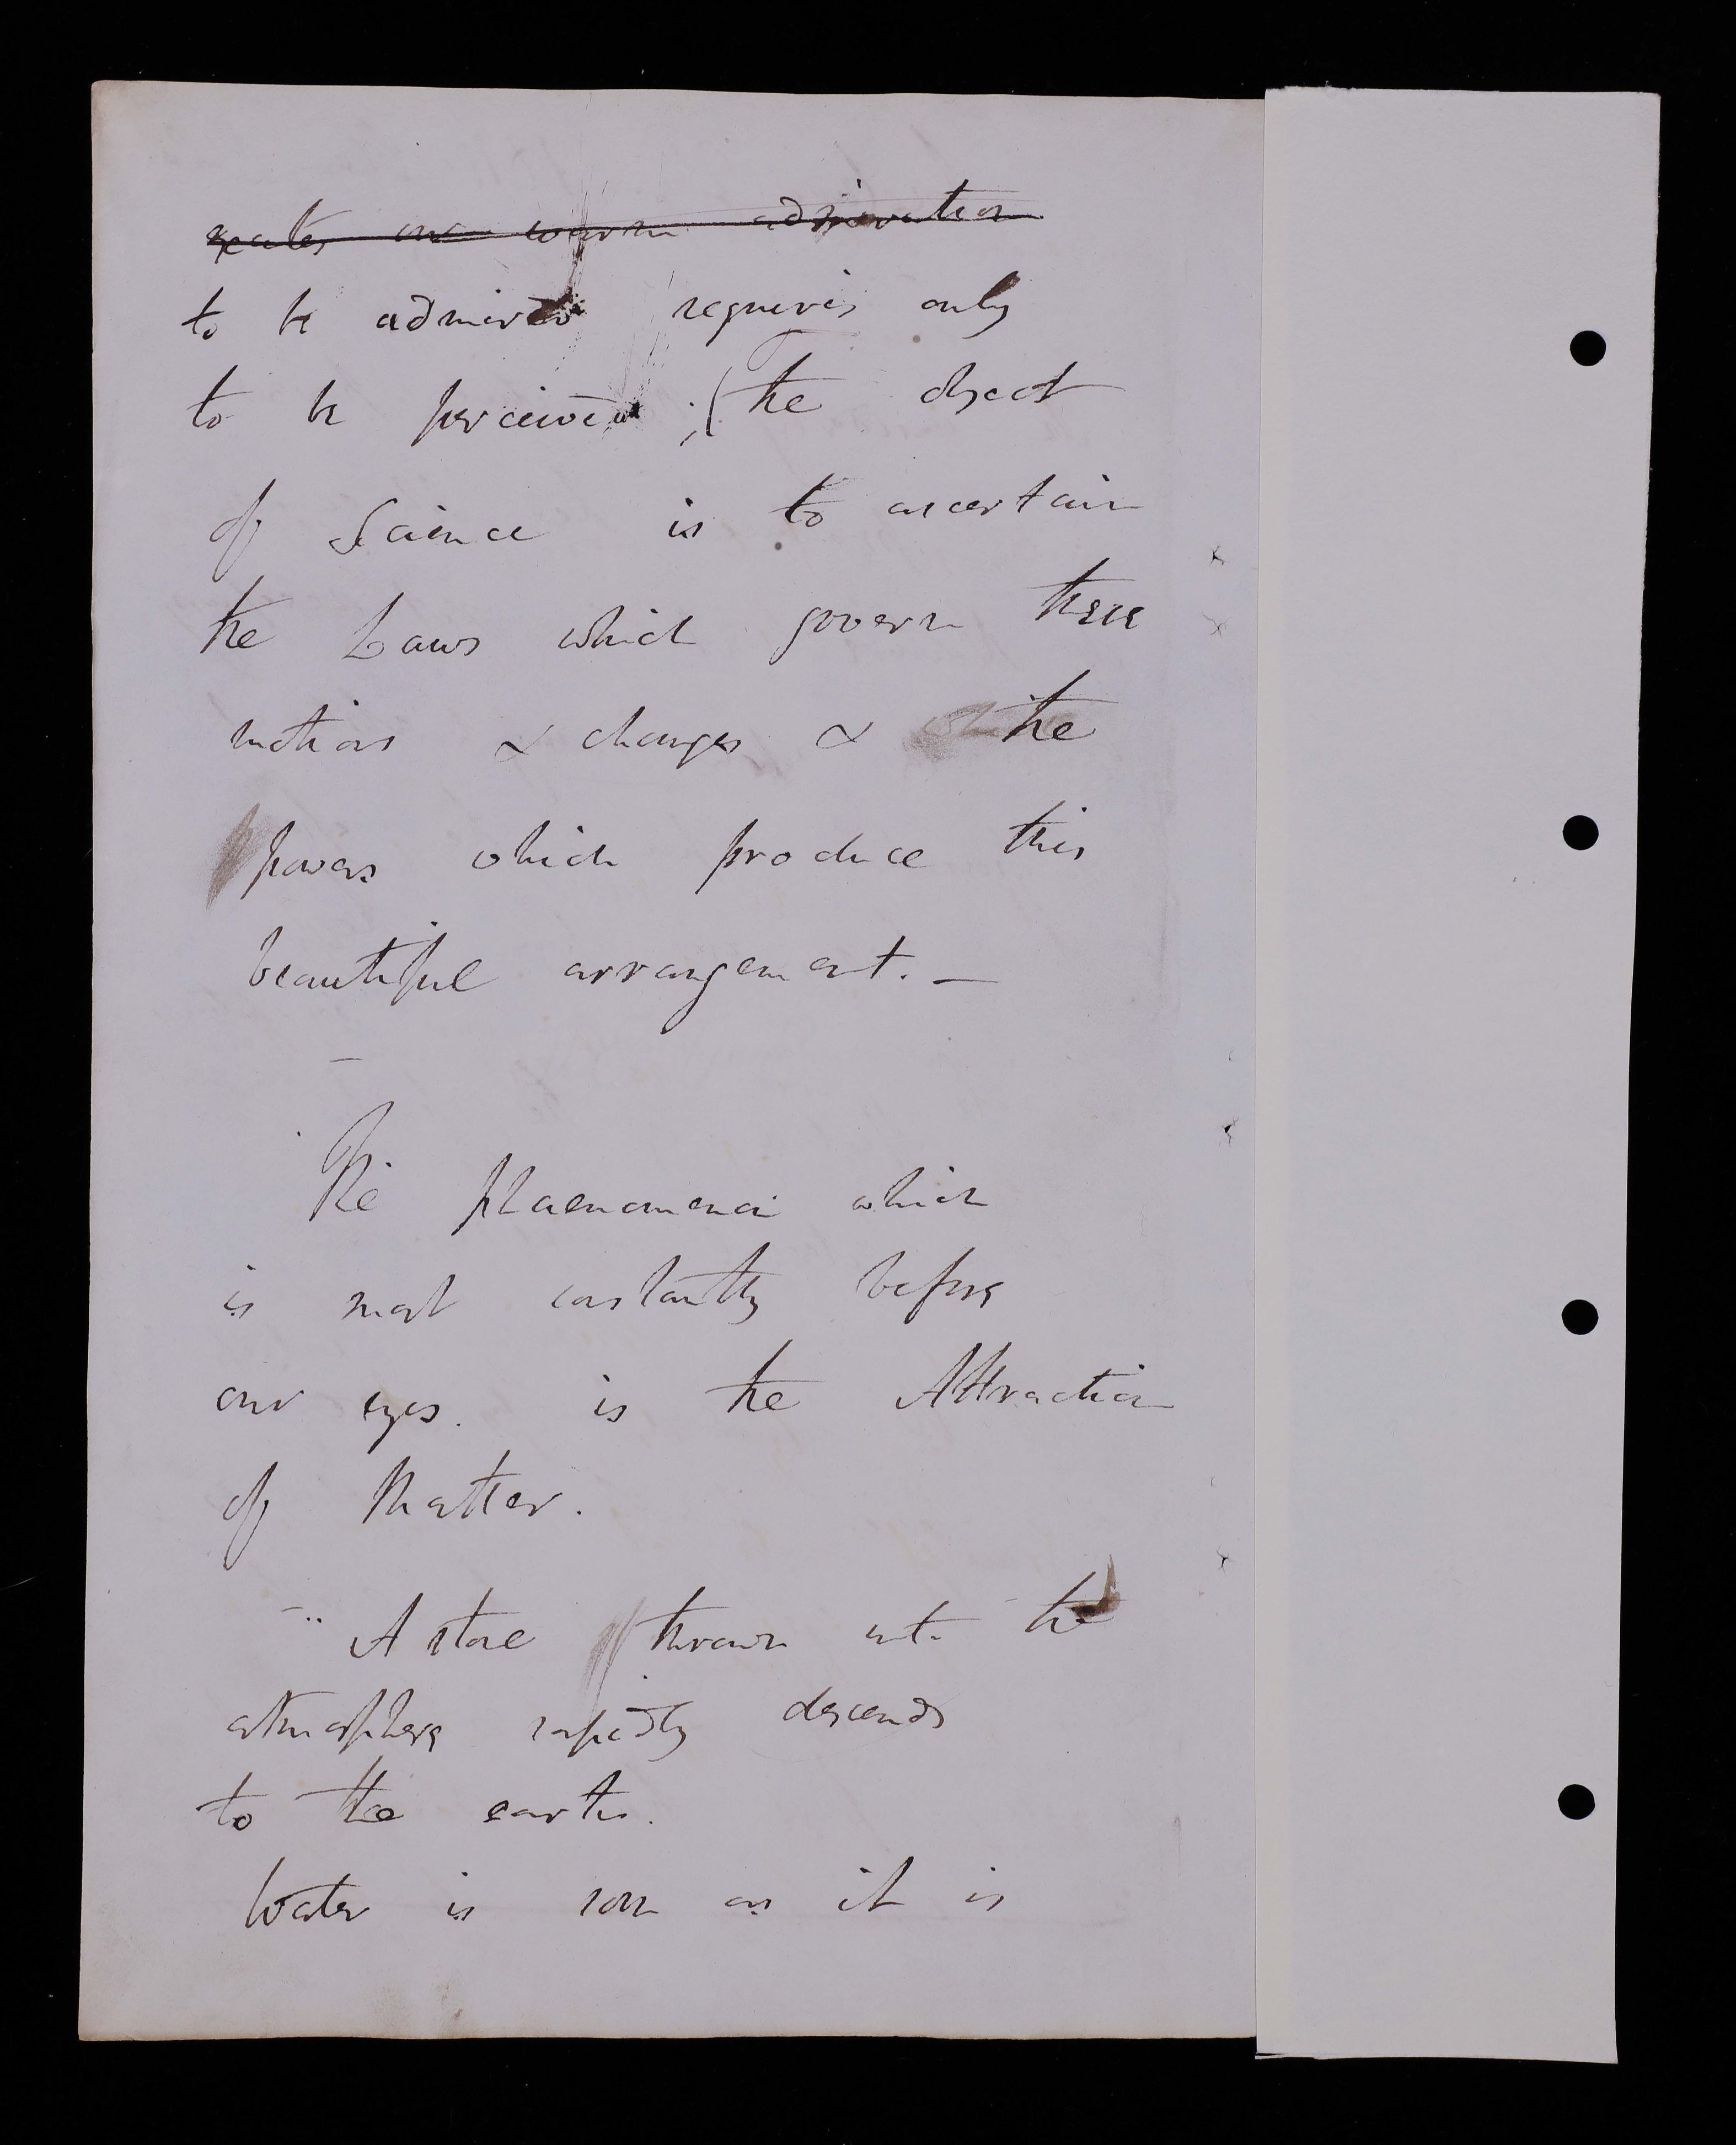 excites our warm admiration
to be admired requires only
to be perceived ; (the object
of Science is to ascertain
the Laws which govern these
motions & changes & the
powers which produce this
beautiful arrangement. —
The phaenomena which
is most constantly before
our eyes. is the Attraction
of Matter.
A stone thrown into the
atmosphere rapidly descends
to the earth.
Water is soon as it is